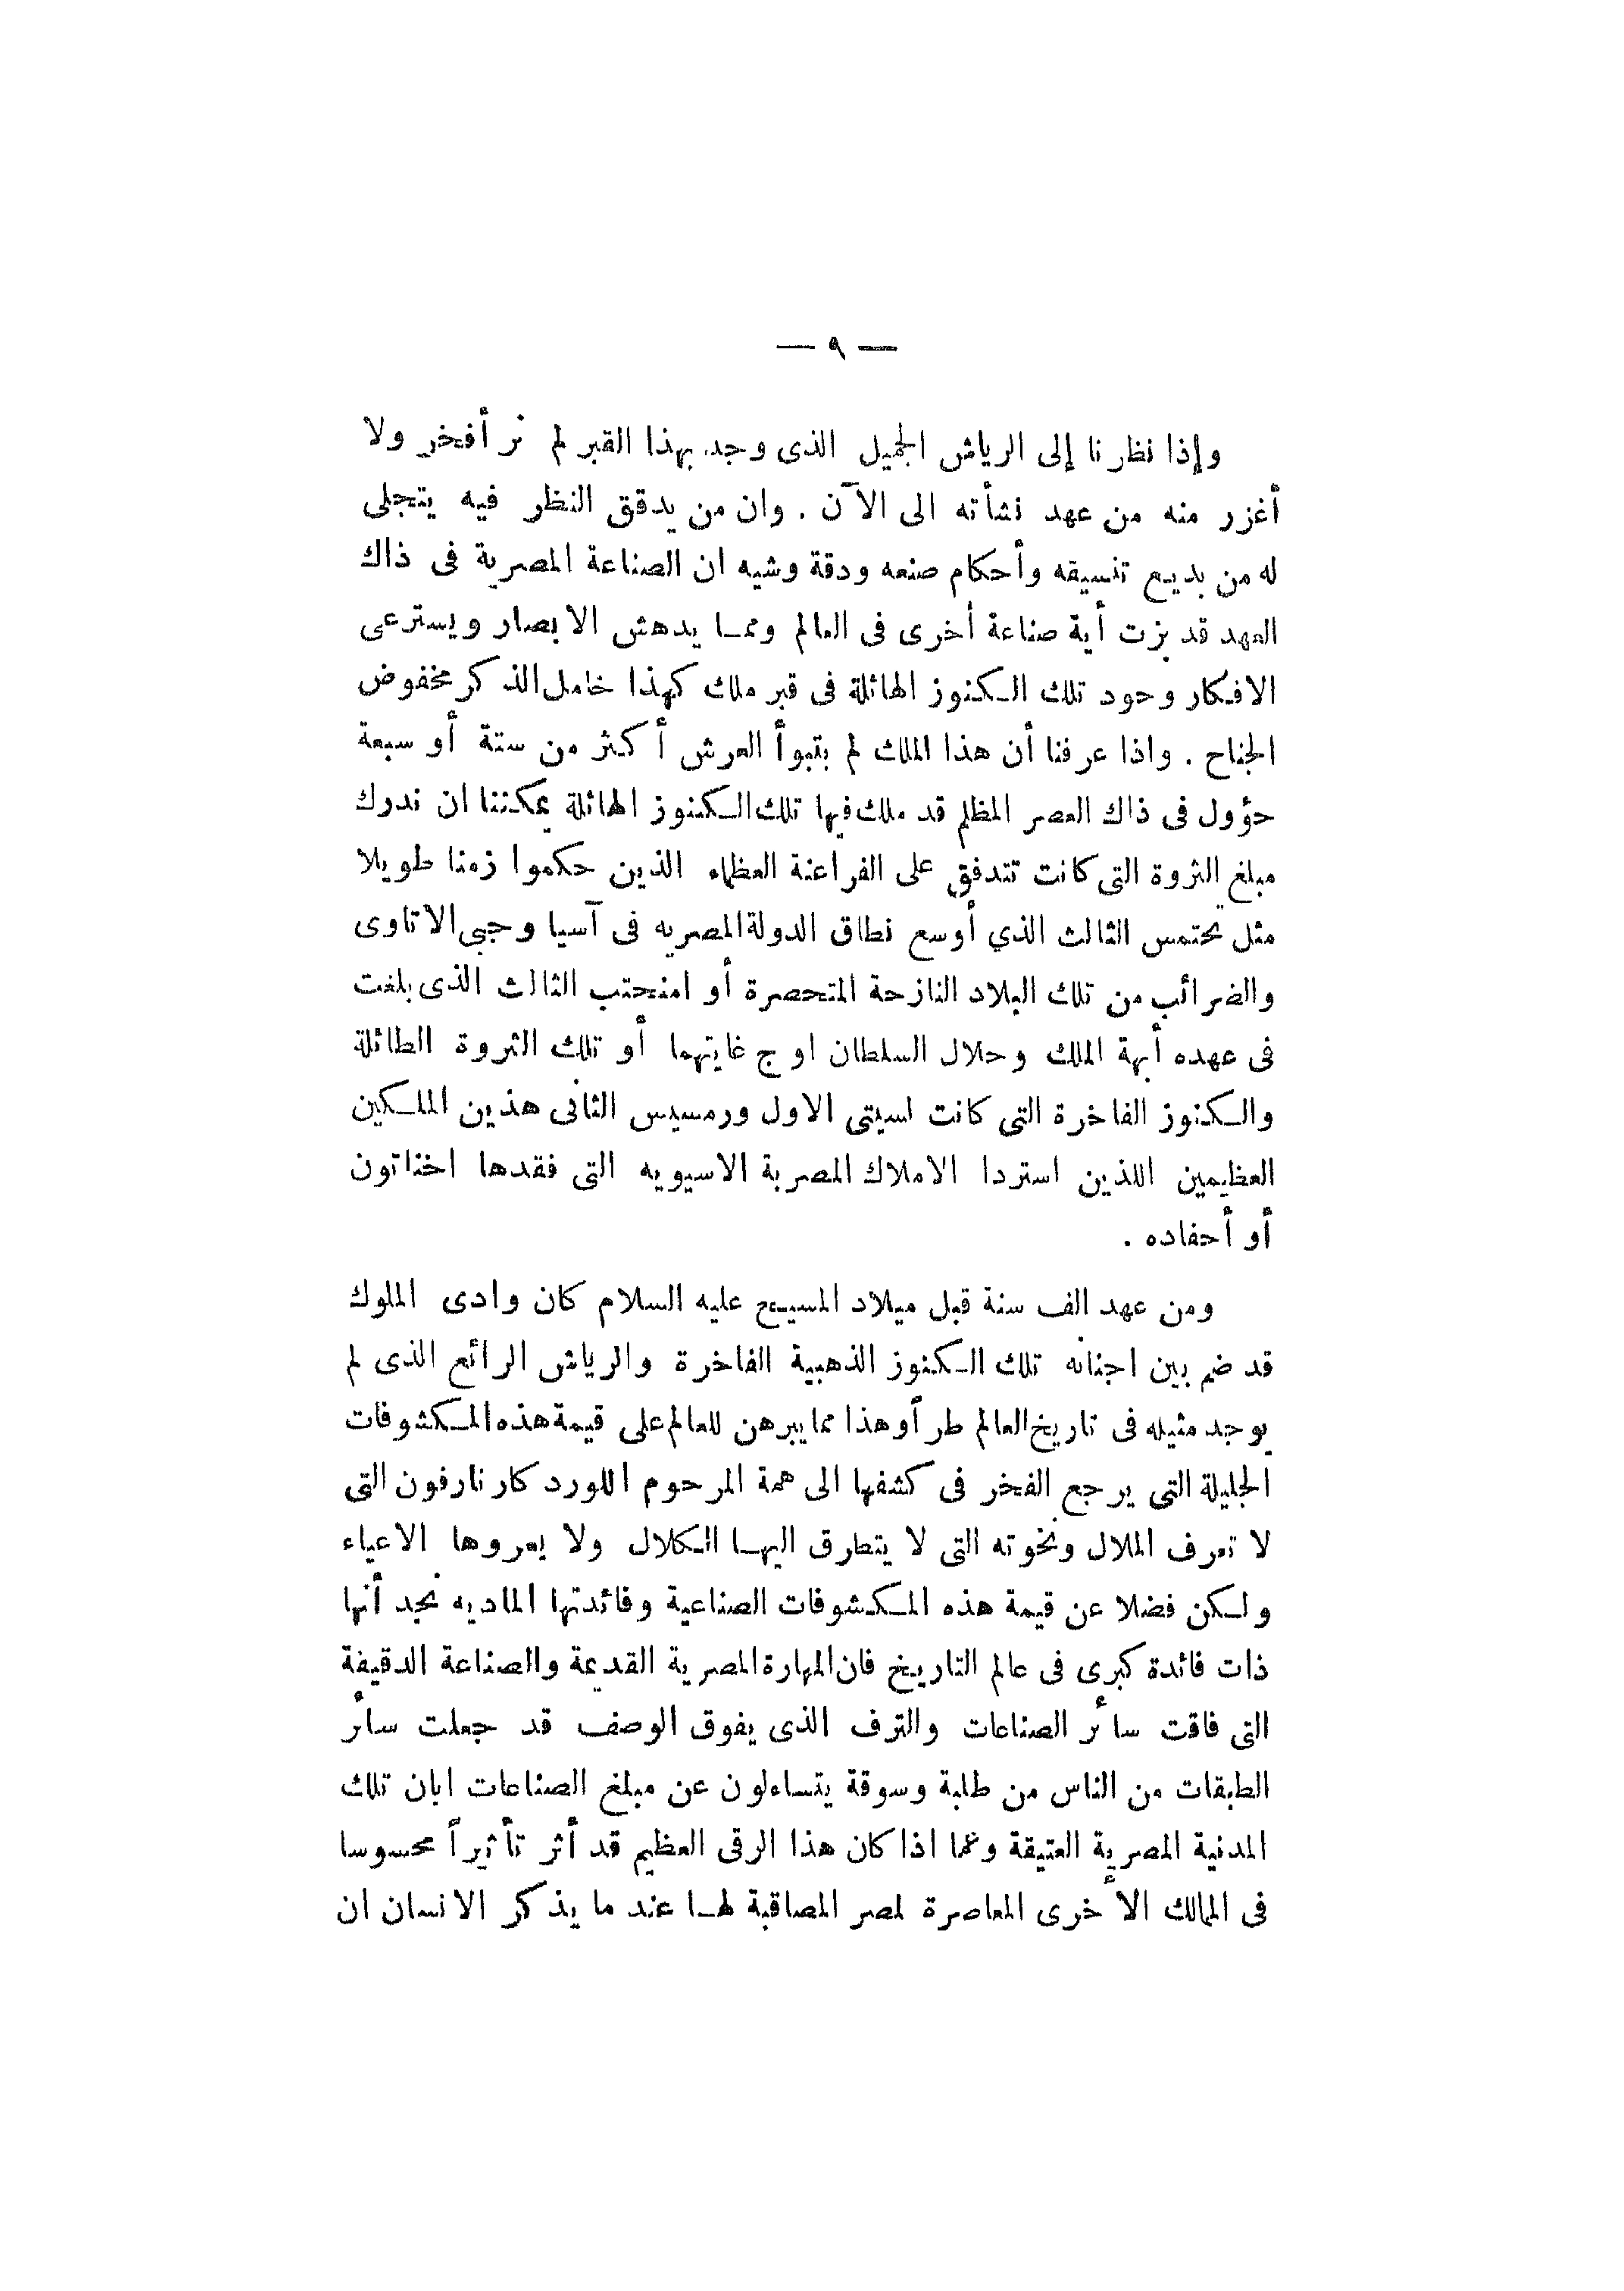 — ٩ —
وإذا نظرنا إلى الرياش الجميل الذى وجد بهذا القبر لم نر أفخر ولا
أغزر منه من عهد نشأته الى الآن . وان من يدقق النظر فيه يتجلى
له من بديع تنسيقه وأحكام صنعه ودقة وشيه ان الصناعة المصرية فى ذاك
العهد قد بزت أية صناعة أخرى فى العالم ومما يدهش الابصار ويسترعى
الافكار وجود تلك الكنوز الهائلة فى قبر ملك كهذا خامل الذكر مخفوض
الجناح . واذا عرفنا أن هذا الملك لم يتبوأ العرش أكثر من ستة أو سبعة
حؤول فى ذاك العصر المظلم قد ملك فيها تلك الكنوز الهائلة يمكننا ان ندرك
مبلغ الثروة التى كانت تتدفق على الفراعنة العظماء الذين حكموا زمنا طويلا
مثل تحتمس الثالث الذي أوسع نطاق الدولة المصريه فى آسيا وجبى الاتاوى
والضرائب من تلك البلاد النازحة المتحصرة أو امنحتب الثالث الذى بلغت
فى عهده أبهة الملك وجلال السلطان اوج غايتهما أو تلك الثروة الطائلة
والكنوز الفاخرة التى كانت لسيتى الاول ورمسيس الثانى هذين الملكين
العظيمين اللذين استردا الاملاك المصرية الاسيويه التى فقدها اخناتون
أو أحفاده .
ومن عهد الف سنة قبل ميلاد المسيح عليه السلام كان وادى الملوك
قد ضم بين اجنانه تلك الكنوز الذهبية الفاخرة والرياش الرائع الذى لم
يوجد مثيله فى تاريخ العالم طرأ وهذا مما يبرهن للعالم على قيمة هذه المكشوفات
الجليلة التى يرجع الفخر فى كشفها الى همة المرحوم اللورد كارنارفون التى
لا تعرف الملال ونخوته التى لا يتطرق اليها الكلال ولا يعروها الاعياء
ولكن فضلا عن قيمة هذه المكشوفات الصناعية وفائدتها الماديه نجد أنها
ذات فائدة كبرى فى عالم التاريخ فان المهارة المصرية القديمة والصناعة الدقيقة
التى فاقت سائر الصناعات والترف الذى يفوق الوصف قد جعلت سائر
الطبقات من الناس من طلبة وسوقة يتساءلون عن مبلغ الصناعات ابان تلك
المدنية المصرية العتيقة وعما اذا كان هذا الرقى العظيم قد أثر تأثيراً محسوسا
فى الممالك الأخرى المعاصرة لمصر المصاقبة لها عند ما يذكر الانسان ان